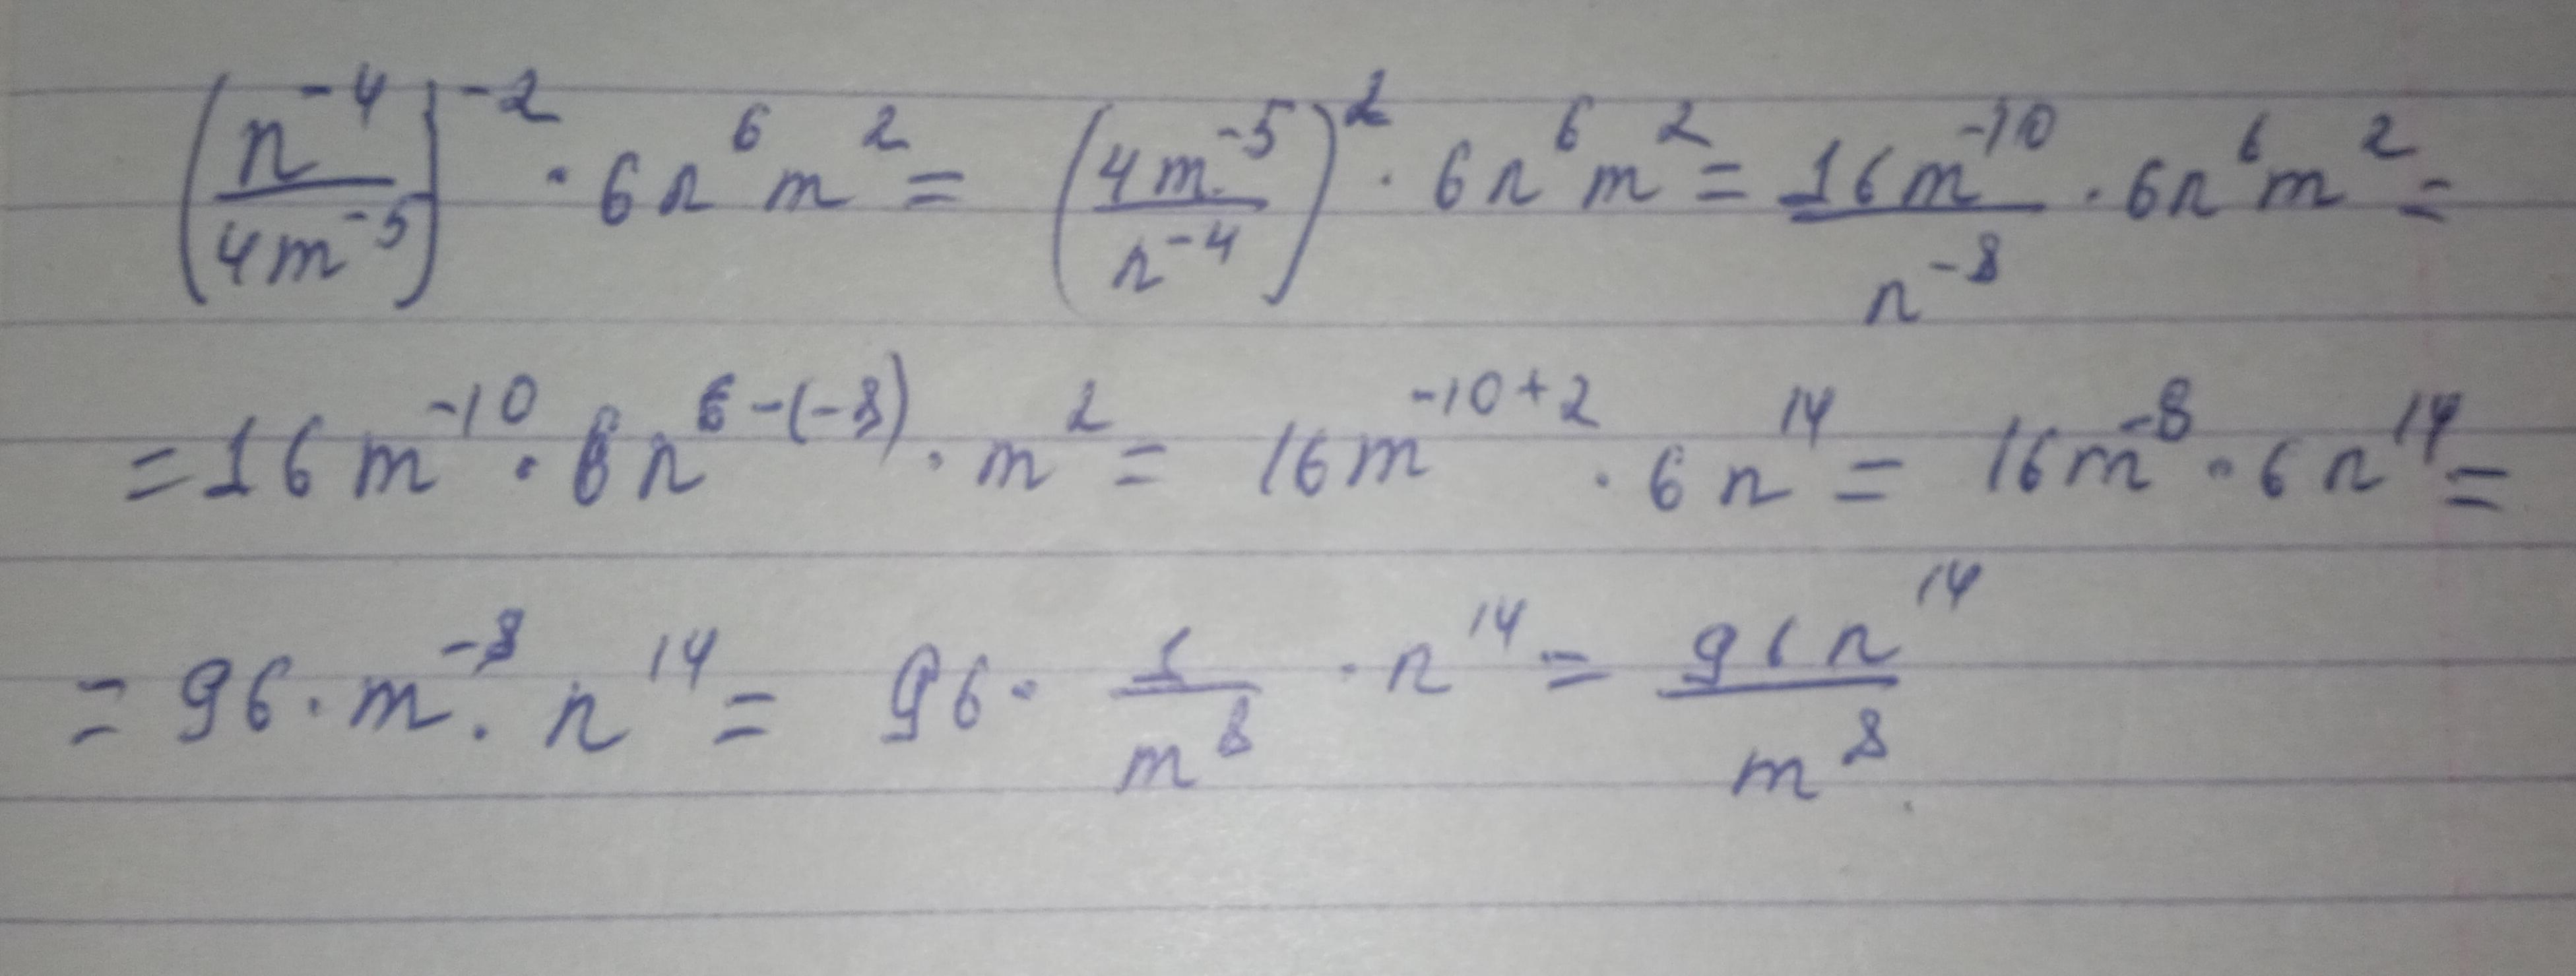 (n^-4/4m^-5)^-2 · 6n^6m^2 = (4m^-5/n^-4)^2 · 6n^6m^2 = 16m^-10/n^-8 · 6n^6m^2 =
= 16m^-10 · 6n^6-(-8) · m^2 = 16m^-10+2 · 6n^14 = 16m^-8 · 6n^14 =
= 96 · m^-8 · n^14 = 96 · 1/m^8 · n^14 = 96n^14/m^8